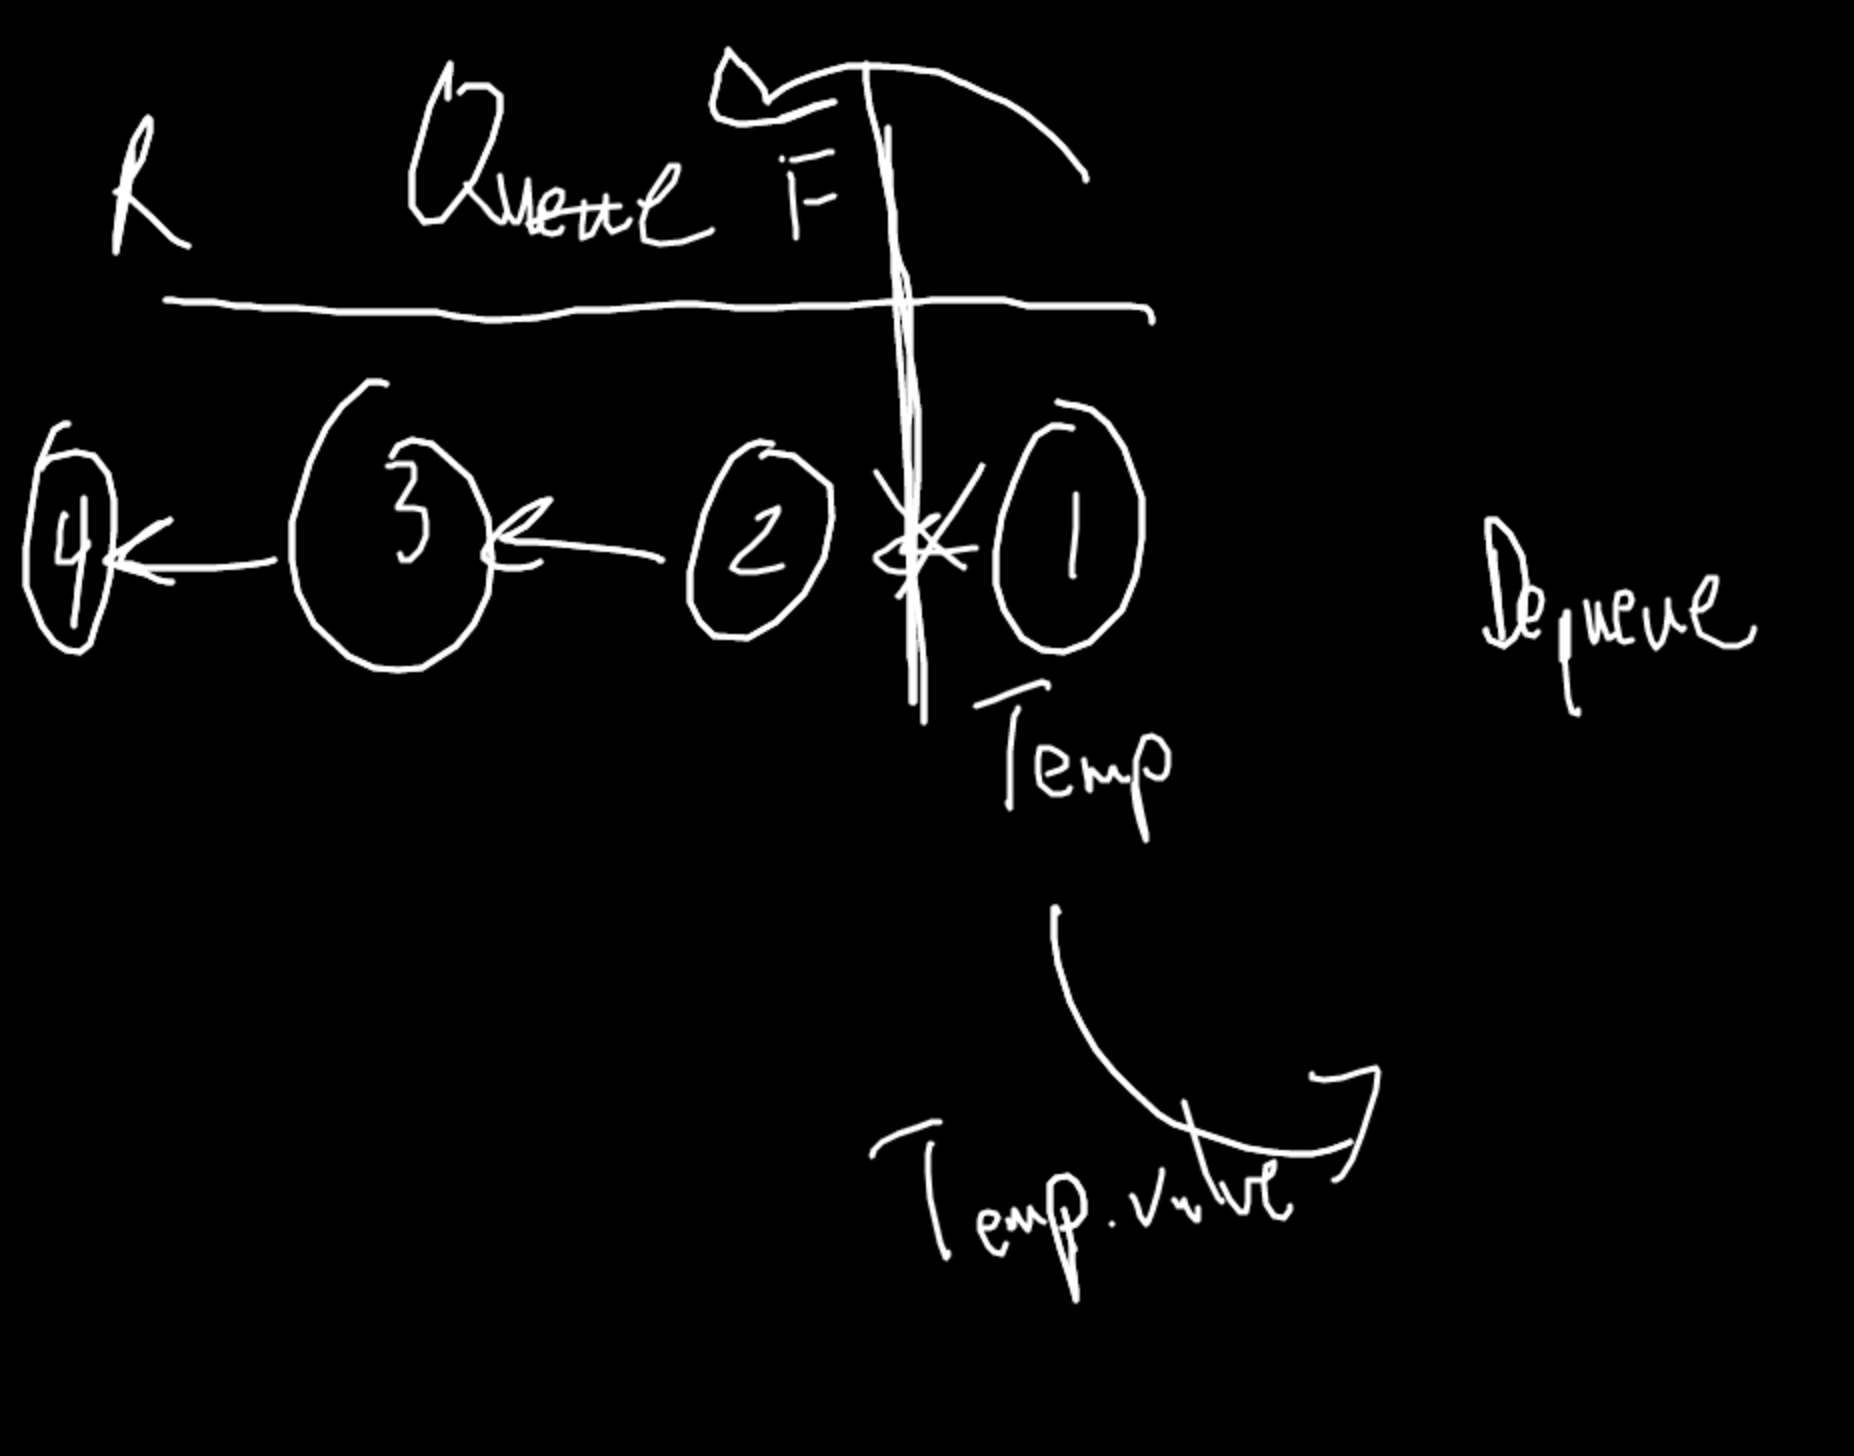 R Queue F
4 3 2 1
Dequeue
Temp
Temp.value